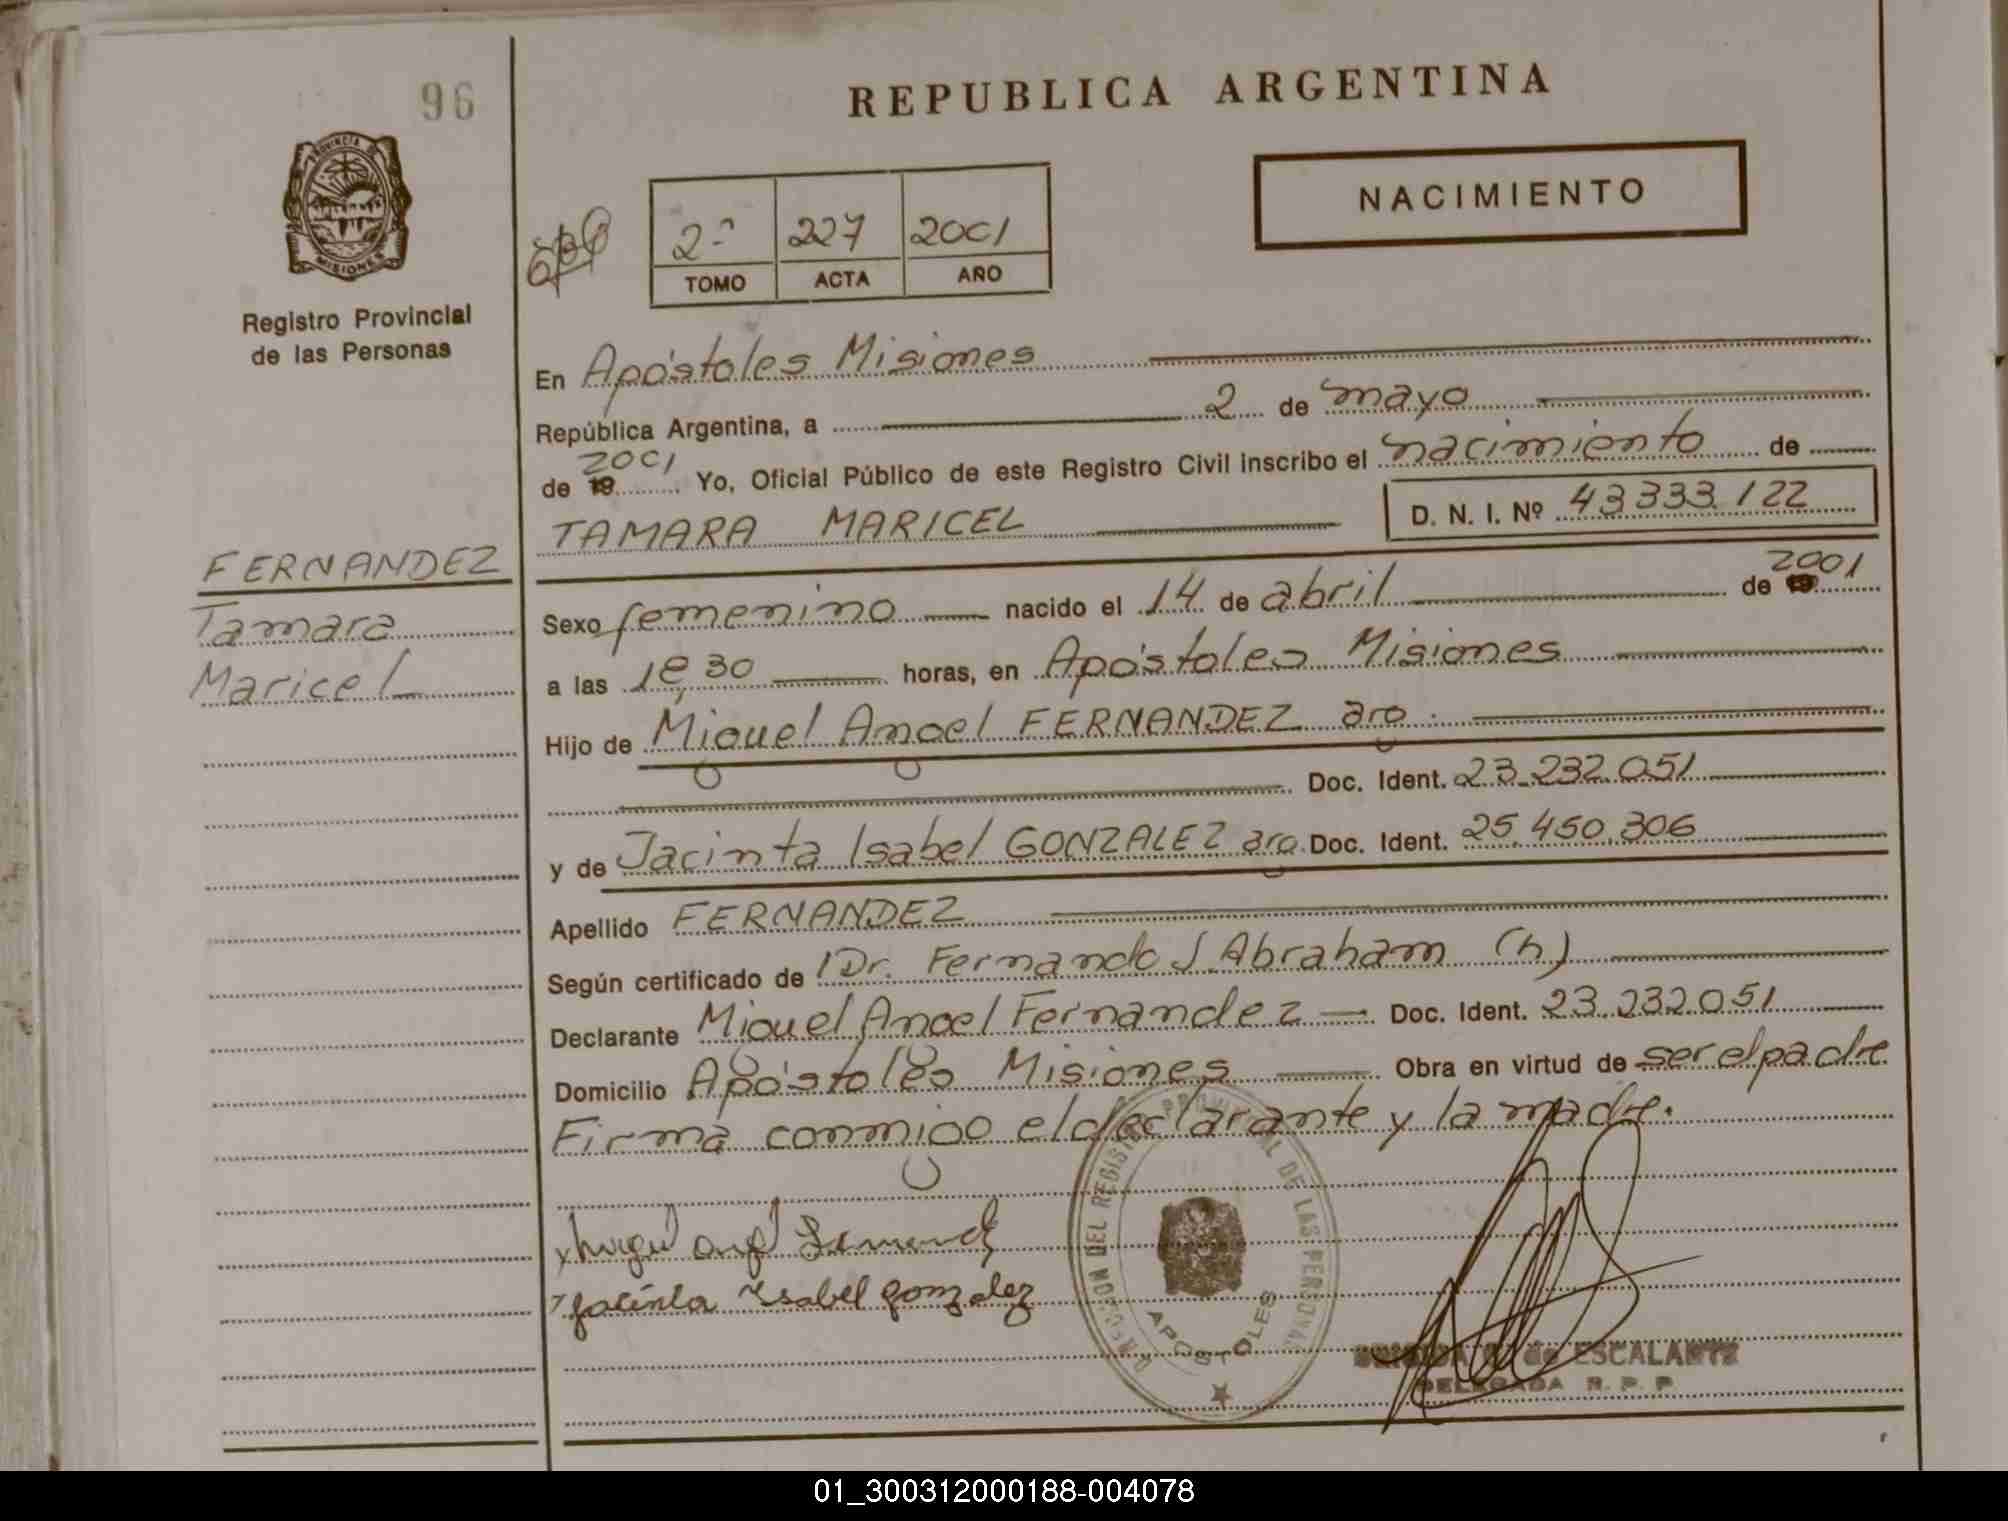 96
REPUBLICA ARGENTINA
NACIMIENTO
PROVINCIA DE
MISIONES
2ª 227 2001
TOMO ACTA AÑO
Registro Provincial
de las Personas
En Apóstoles Misiones
República Argentina, a 2 de mayo
de 19 2001 Yo, Oficial Público de este Registro Civil inscribo el nacimiento de
TAMARA MARICEL D. N. I. Nº 43 333 122
FERNANDEZ
Tamara
Maricel
Sexo femenino nacido el 14 de abril de 19 2001
a las 1e,30 horas, en Apóstoles Misiones
Hijo de Miguel Angel FERNANDEZ arg.
Doc. Ident. 23.232.051
y de Jacinta Isabel GONZALEZ arg. Doc. Ident. 25.450.306
Apellido FERNANDEZ
Según certificado de Dr. Fernando J. Abraham (h)
Declarante Miguel Angel Fernandez Doc. Ident. 23.232.051
Domicilio Apóstoles Misiones Obra en virtud de ser el padre
Firma conmigo el declarante y la madre.
Jacinta Ysabel gonzalez
DEL REGISTRO PROVINCIAL DE LAS PERSONAS
APOSTOLES
de ESCALANTE
DELEGADA R. P. P.
01_300312000188-004078